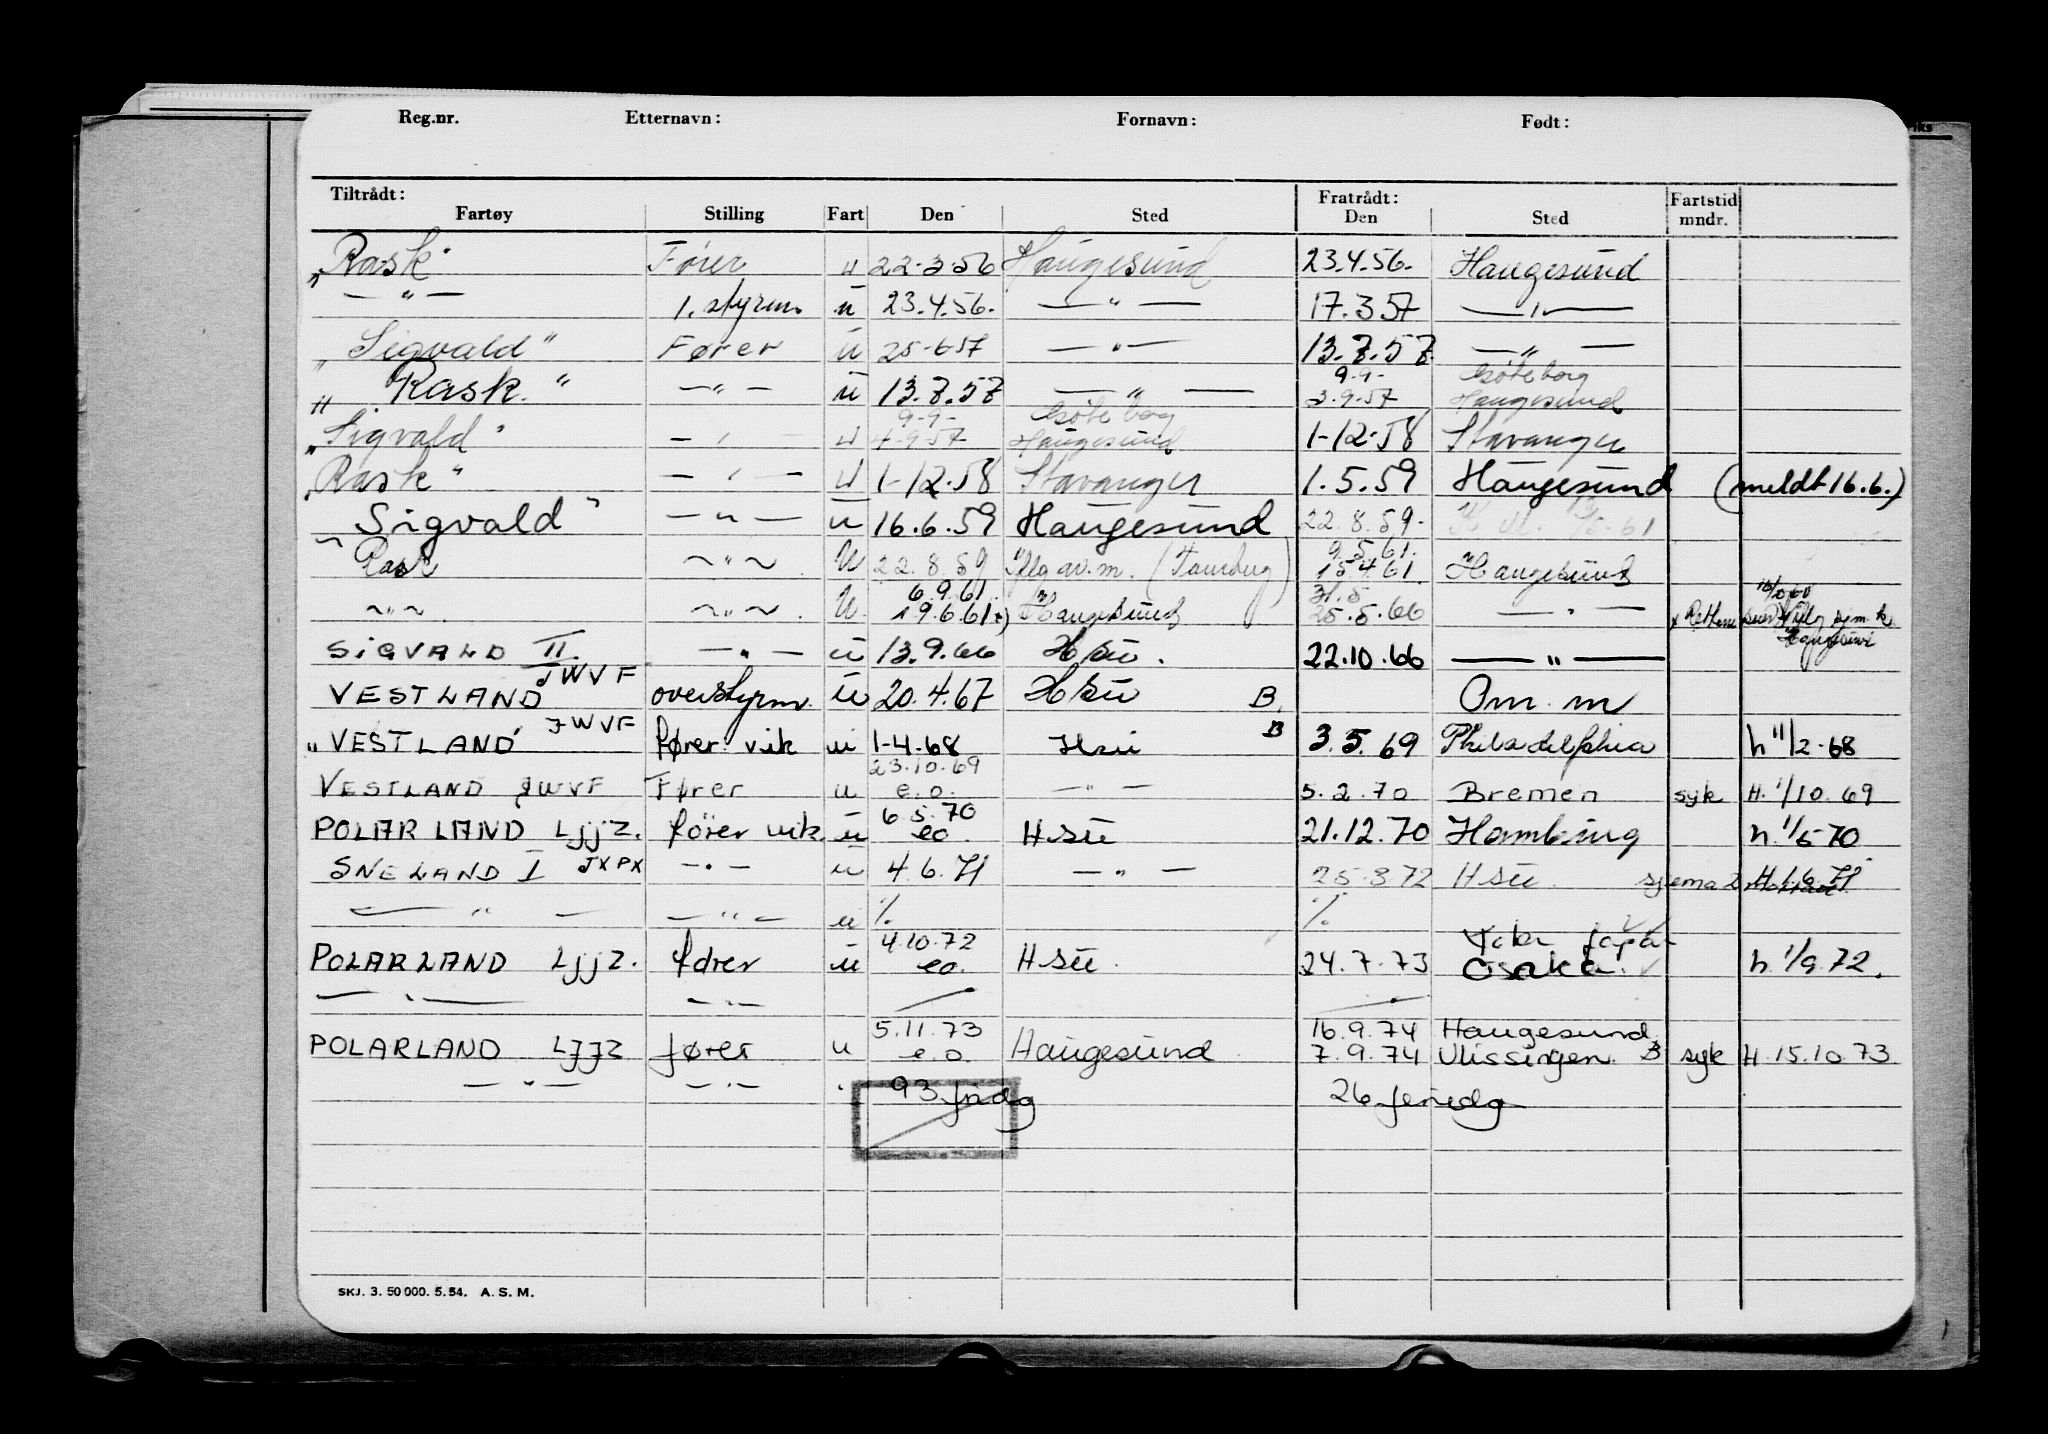 Reg.nr. Etternavn: Fornavn: Født:
Tiltrådt: Fratrådt: Fartstid
Fartøy Stilling Fart Den Sted Den Sted mndr.
„Rask" Fører u 22-3-56 Haugesund 23.4.56. Haugesund
— " — 1. styrm. u 23.4.56. — " — 17.3 57 — " —
„Sigvald" Fører u 25-6-57 — " — 13.7.57 — " —
9.9- Göteborg
„Rask." — " — u 13.7.57 — " — 3-9-57 Haugesund
9-9- Göteborg
„Sigvald" — " — u 4-9-57 Haugesund 1-12-58 Stavanger
„Rask" — " — u 1-12-58 Stavanger 1.5.59 Haugesund (meldt 16.6.)
Sigvald" — " — u 16.6.59 Haugesund 22.8.59-
9.5.61.
Rask ~ " ~ u 22.8.59 15.4.61. Haugesund
6.9.61 31.5
~ " ~ ~ " ~ u 19.6.61 x) Haugesund 25.5.66 — " —
SIGVALD II — " — u 13.9.66 Hsu. 22.10.66 — " —
VESTLAND JWVF overstyrm. u 20.4.67 Hsu B. Om. m
„VESTLAND" JWVF fører vik u 1-4-68 Hsu B 3.5.69 Philadelphia h 11/2-68
23.10.69
VESTLAND JWVF Fører u e.o. — " — 5.2.70 Bremen syk H. 1/10.69
6.5.70
POLARLAND Ljjz. fører vik u eo. Hsu 21.12.70 Hamburg h. 1/5 70
SNELAND I JXPX — " — u 4.6.71 — " — 25.3.72 Hsu. H 1.6.71
— " — — " — u % %
4.10.72
POLARLAND Ljjz. fører u eo. Hsu. 24.7.73 Osaka. h. 1/9.72.
— " — — " —
5.11.73 16.9.74 Haugesund
POLARLAND LJJZ fører u e.o. Haugesund 7.9.74 Vlissingen. B syk H. 15.10.73
— " — — " — " 93 fridg 26 feriedg
SKJ. 3. 50 000. 5. 54. A. S. M.